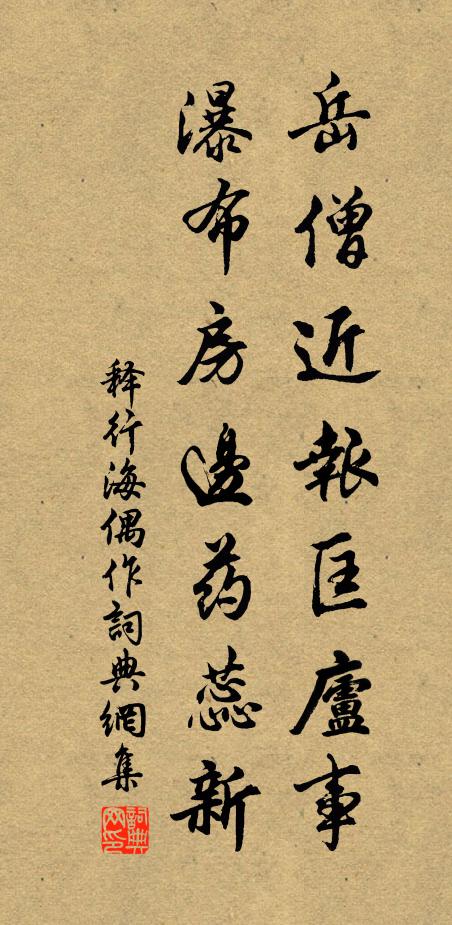 岳僧近報匡廬事
瀑布房邊药蕊新
释行海偶作詞典網集
詞典网印